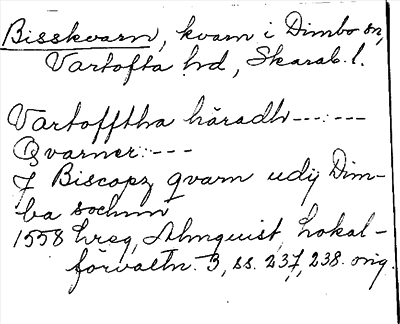 Bisskvarn, kvarn i Dimbo sn,
Vartofta hd, Skarab. l.
Vartofftha häradh --- : ---
Qvarner: ---
J Biscopz qvarn udij Dim-
ba sochnn
1558 hreg, Almquist, Lokal-
förvaltn. 3, ss. 237, 238. orig.